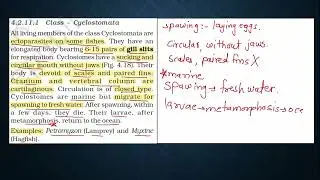 4.2.11.1 Class – Cyclostomata
All living members of the class Cyclostomata are
ectoparasites on some fishes. They have an
elongated body bearing 6-15 pairs of gill slits
for respiration. Cyclostomes have a sucking and
circular mouth without jaws (Fig. 4.18). Their
body is devoid of scales and paired fins.
Cranium and vertebral column are
cartilaginous. Circulation is of closed type.
Cyclostomes are marine but migrate for
spawning to fresh water. After spawning, within
a few days, they die. Their larvae, after
metamorphosis, return to the ocean.
Examples: Petromyzon (Lamprey) and Myxine
(Hagfish).
spawing:- laying eggs.
Circular without jaws.
Scales, paired fins X
*marine
Spawing → fresh water.
larvae → metamorphosis → oce